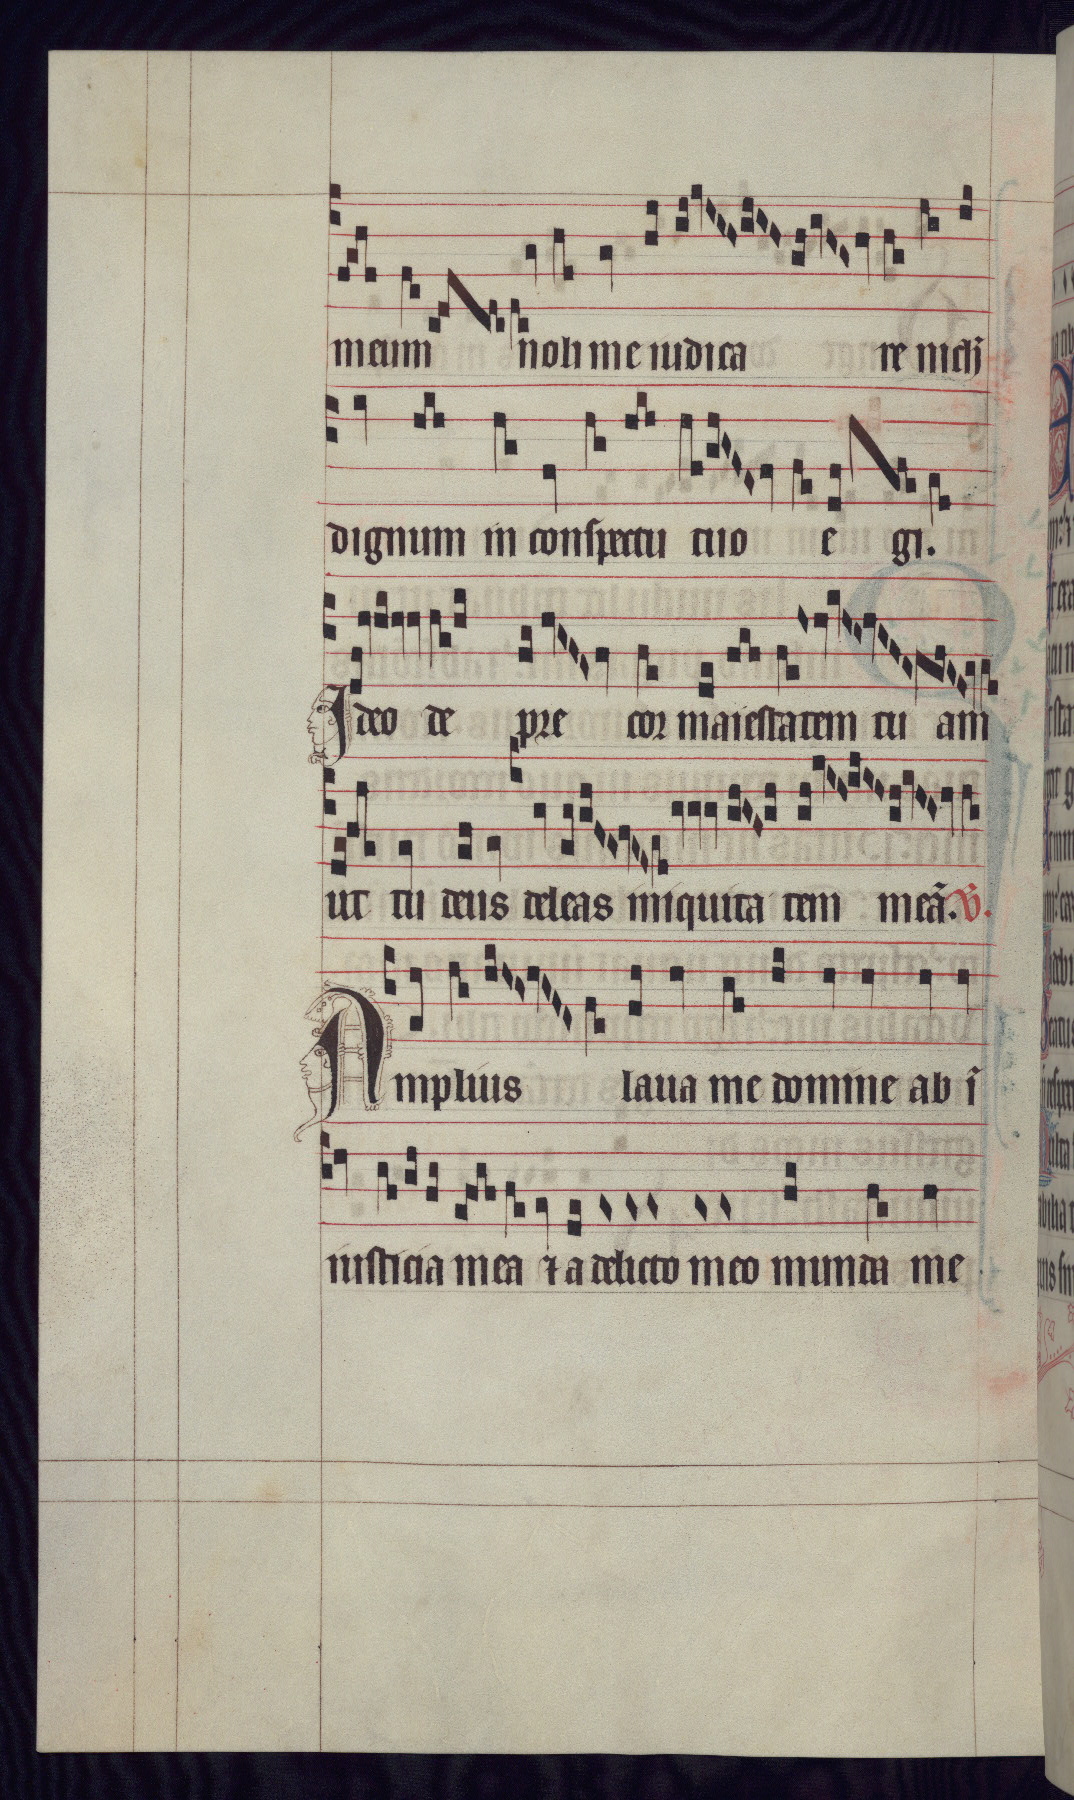 meum noli me iudica re nichi᷒
dignum in conspectu tuo e gi.
Ideo de pre cor maiestatem tu am
ut tu deus deleas iniquita tem meā. V.
Amplius laua me domine ab ī
iusticia mea ⁊ a delicto meo munda me